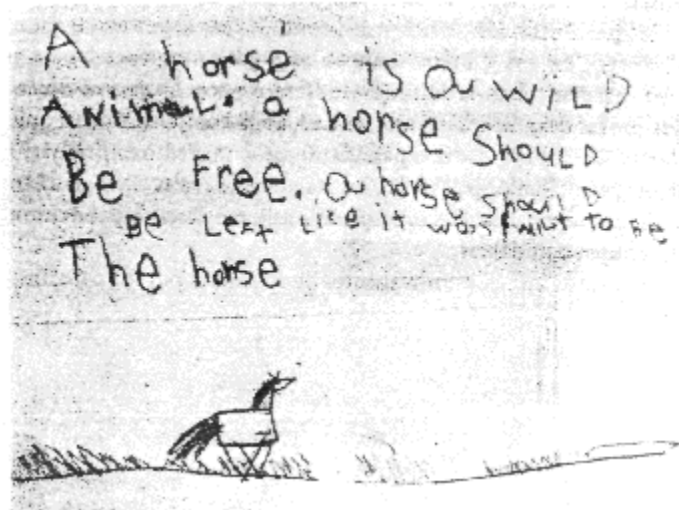 A horse is a wiLD
ANimaL. a horse ShouLD
Be Free. a horse ShouLD
Be LeFt Like it was mint to Be
The horse